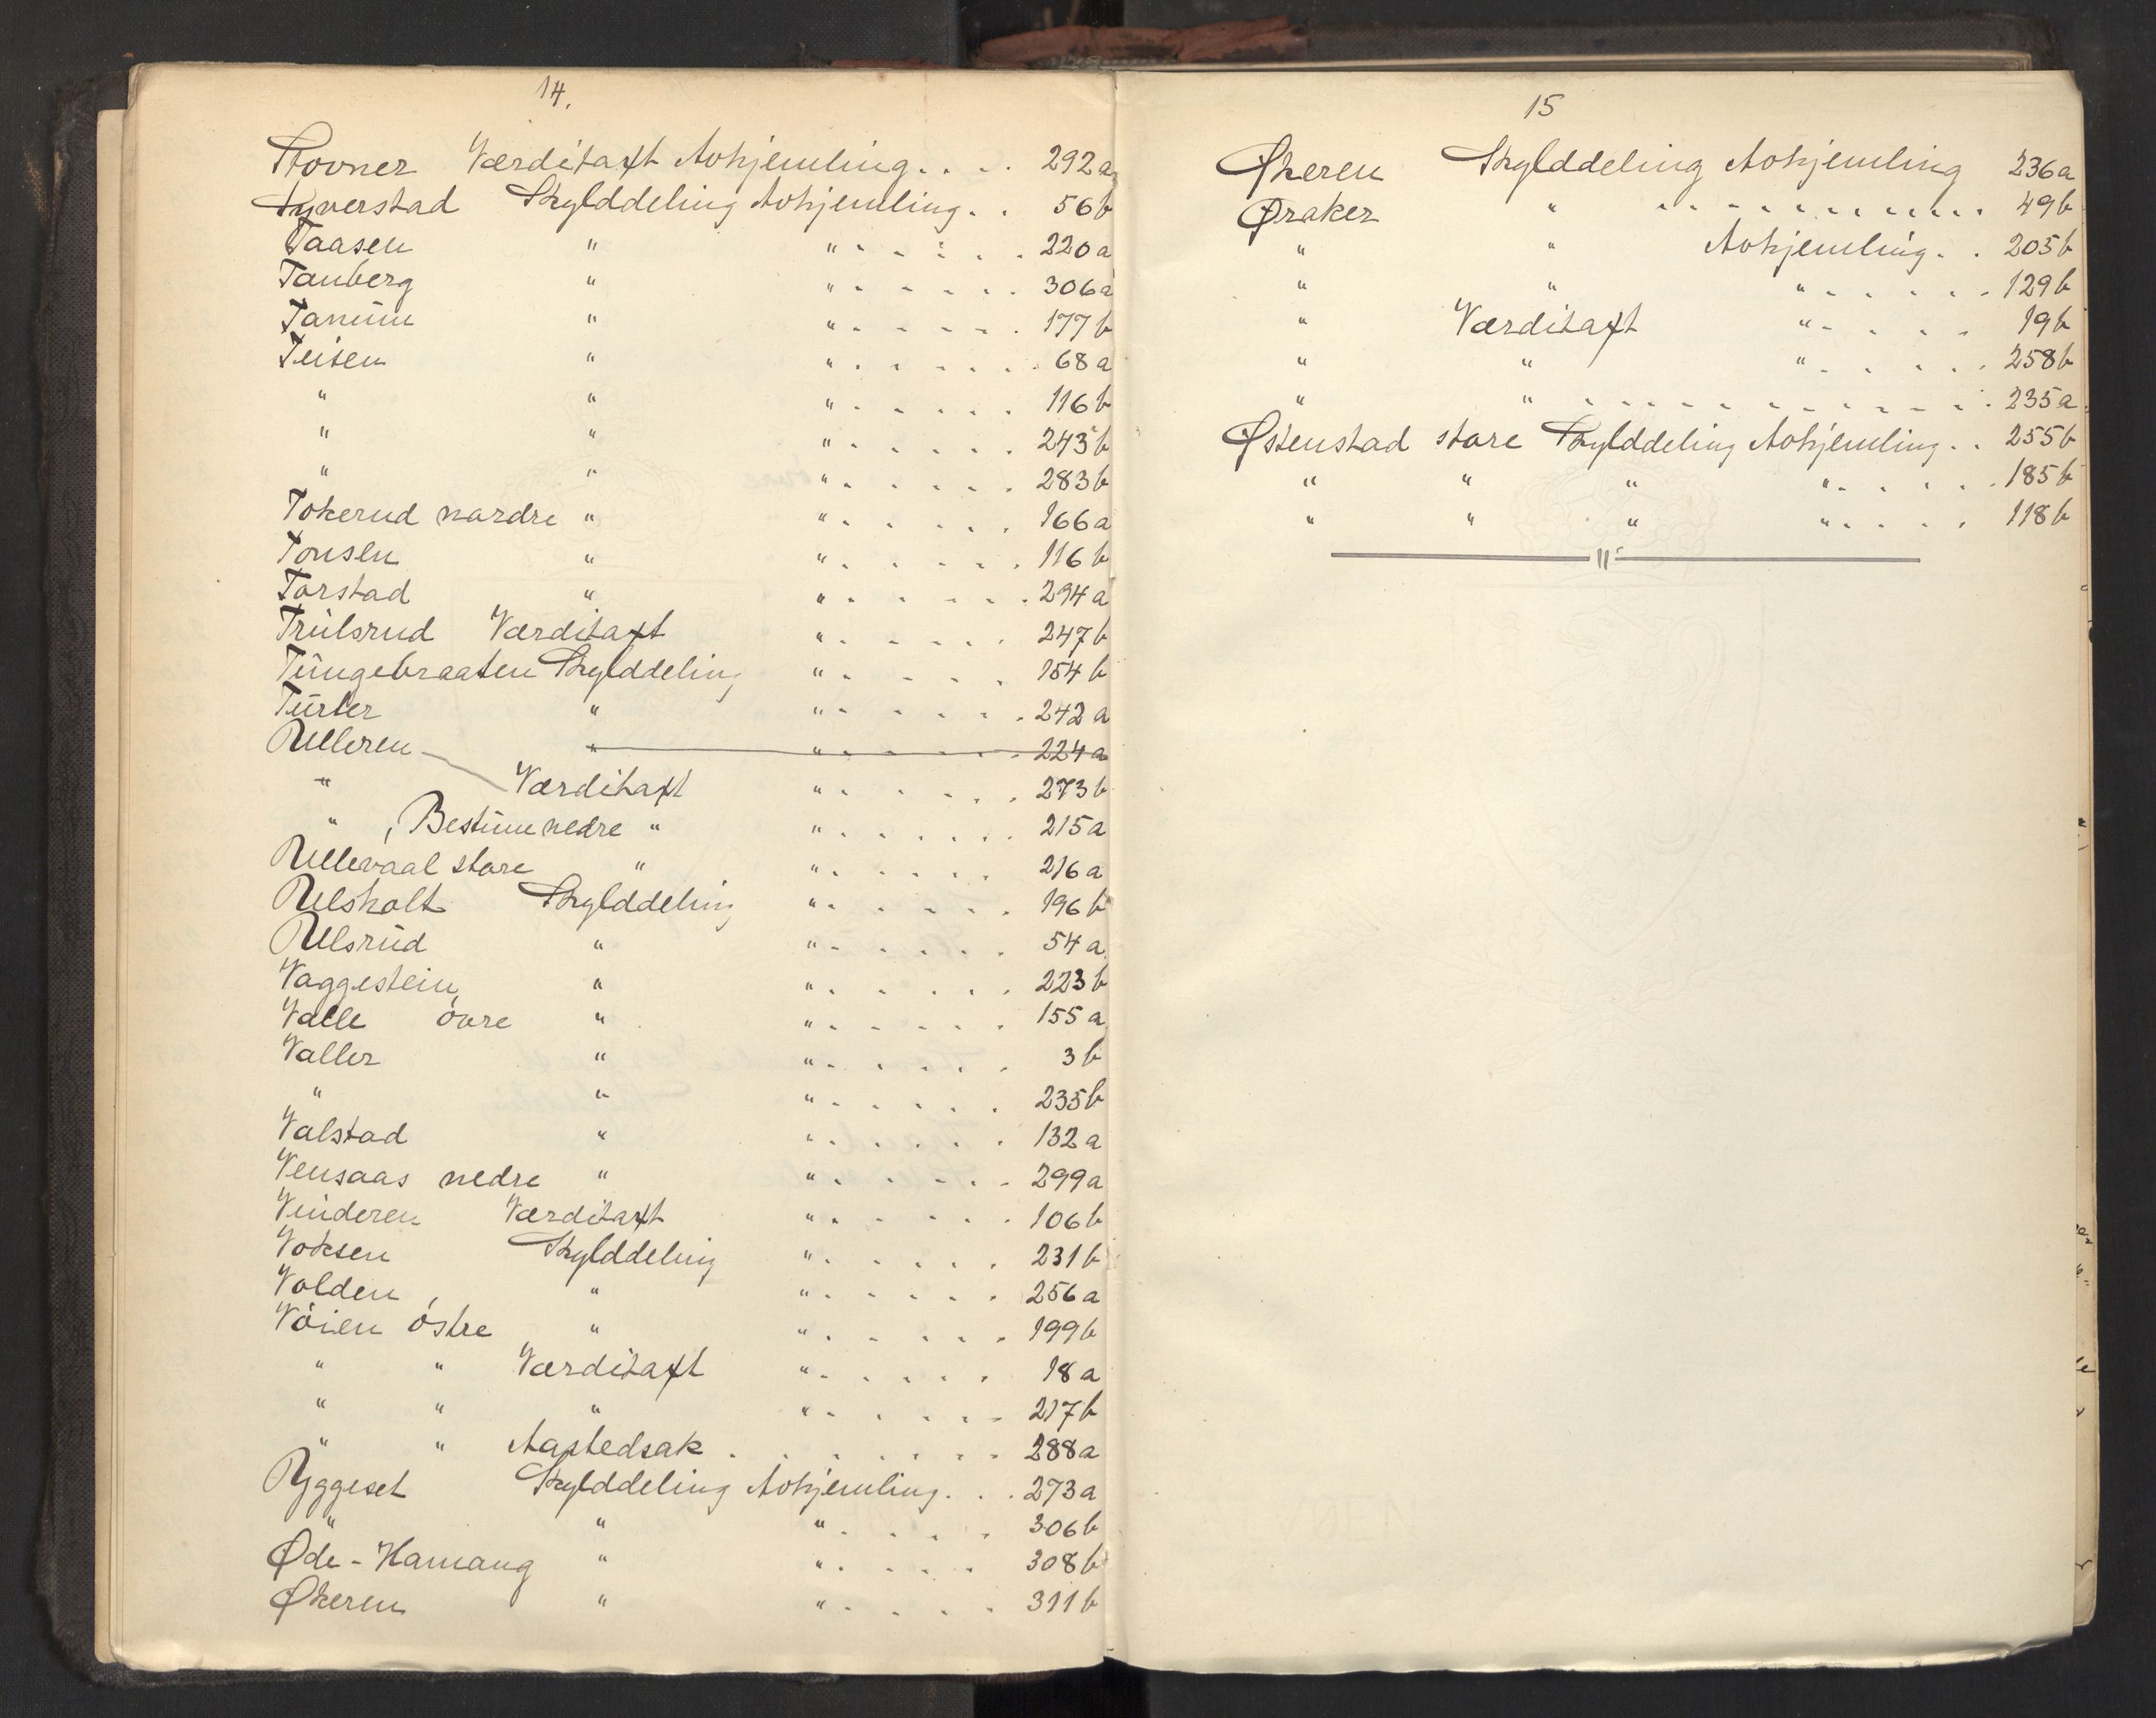 14.
Stovner Værditaxt Avhjemling.... 292a
Syverstad Skylddeling Avhjemling.. 56b
Taasen " "...... 220a
Tanberg " "...... 306a
Tanum " "...... 177b
Teisen " "...... 68a
" " "...... 116b
" " "...... 243b
" " "...... 283b
Tokerud nordre " "...... 166a
Tonsen " "...... 116b
Torstad " "...... 294a
Trulsrud Værditaxt "...... 247b
Tungebraaten Skylddeling "..... 154b
Turter " "...... 242a
Ulleren " "...... 224a
" Værditaxt "...... 273b
" , Bestum nedre " "...... 215a
Ullevaal store " "..... 216a
Ulsholt Skylddeling "...... 196b
Ulsrud " "...... 54a
Vaggestein " "...... 223b
Valle övre " "..... 155a
Valler " "...... 3b
" " "...... 235b
Valstad " "...... 132a
Vensaas nedre " "...... 299a
Vinderen Værditaxt "...... 106b
Voksen Skylddeling "..... 231b
Volden " "...... 256a
Vöien östre " "...... 199b
" " Værditaxt "..... 18a
" " " "...... 217b
" " Aastedsak........ 288a
Yggeset Skylddeling Avhjemling... 273a
" " ".... 306b
Øde-Hamang " ".... 308b
Økeren " "..... 311b
15
Økeren Skylddeling Avhjemling 236a
Øraker " ............ 49b
" " Avhjemling.. 205b
" " "...... 129b
" Værditaxt "..... 19b
" " "..... 258b
" " ............ 235a.
Østenstad store Skylddeling Avhjemling.. 255b
" " " "..... 185b
" " " "..... 118b
"